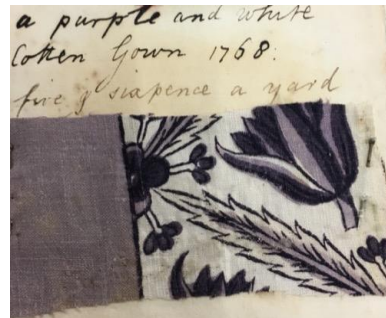 a purple and white
Cotten Gown 1768.
five & sixpence a yard